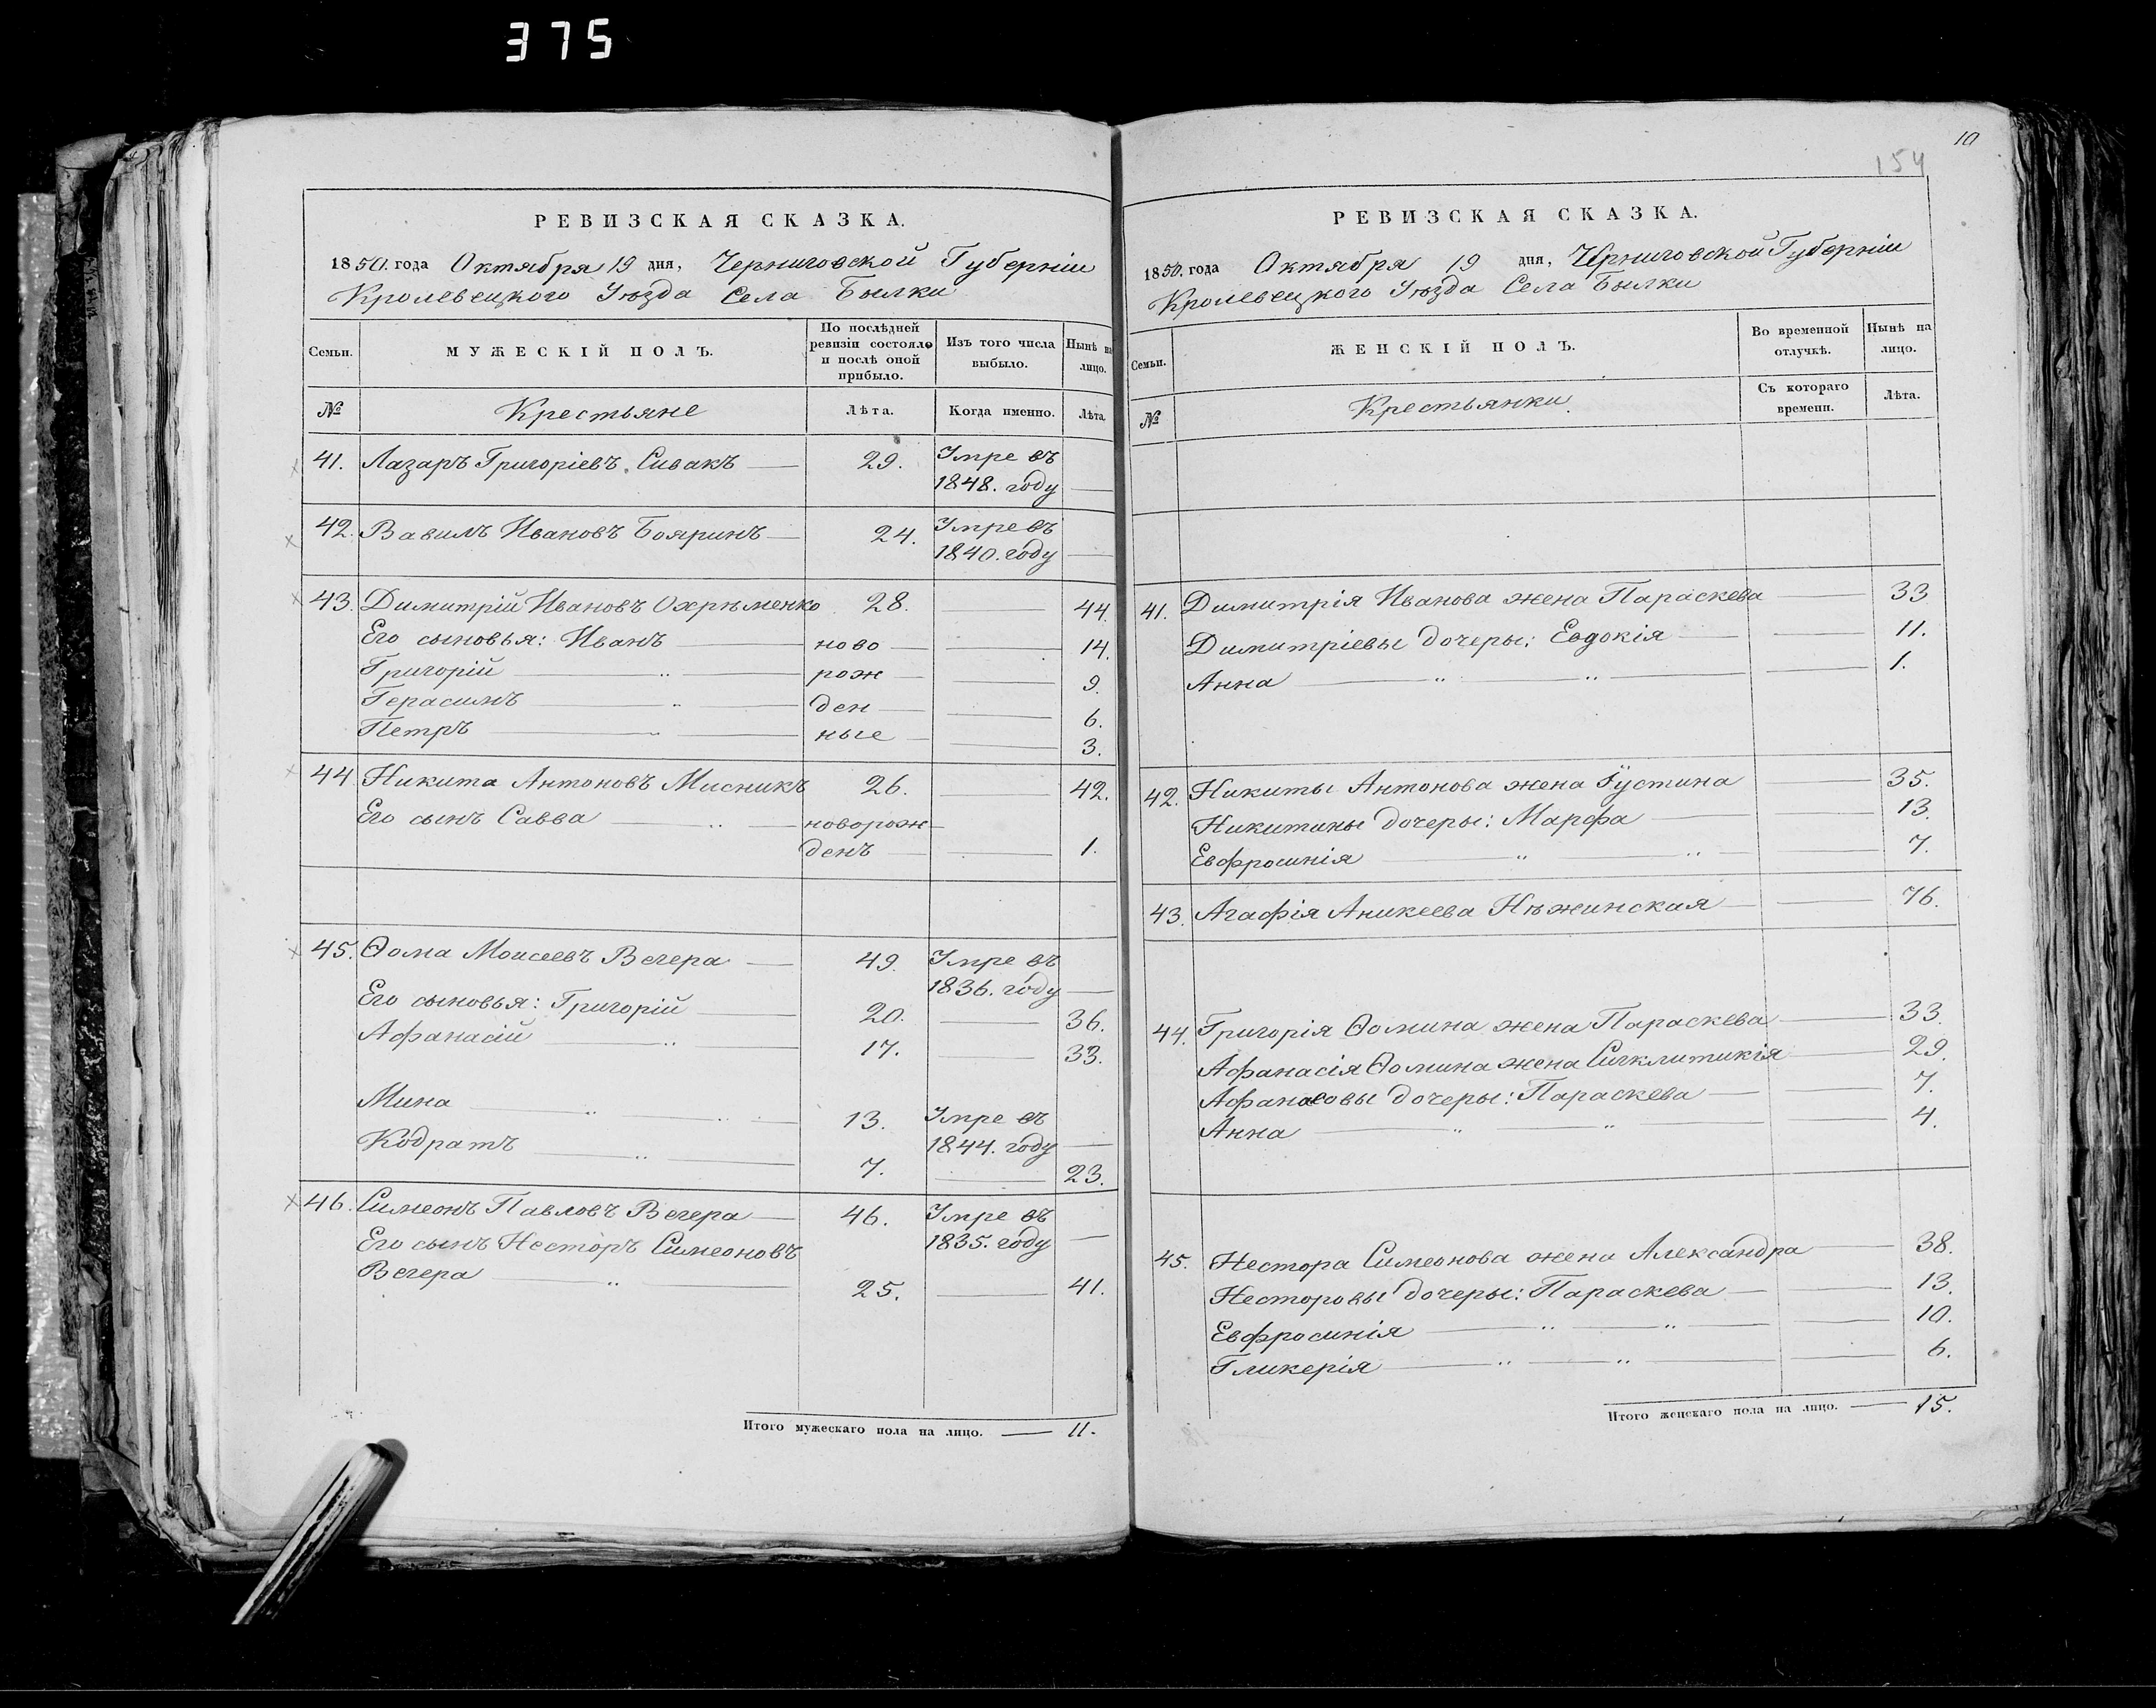 375
РЕВИЗСКАЯ СКАЗКА.
1850. года Октября 19 дня, Черниговской Губерніи
Кролевецкого Уѣзда Села Былки
Семьи.
МУЖЕСКІЙ ПОЛЪ.
По послѣдней ревизіи состояло и послѣ оной прибыло.
Изъ того числа выбыло.
Нынѣ на лицо.
№ Крестьяне Лѣта. Когда именно. Лѣта.
41. Лазаръ Григоріевъ Сивакъ — 29. Умре въ
1848. году —
42. Вавилъ Ивановъ Бояринъ — 24. Умре въ
1840. году —
43. Димитрій Ивановъ Охрѣменко 28. — 44.
Его сыновья: Иванъ — ново — 14.
Григорій — " — рож — 9.
Герасимъ — " — ден — 6.
Петръ — " — ные — 3.
44. Никита Антоновъ Мисникъ 26. — 42.
Его сынъ Савва — " — новорож—
денъ — 1.
45. Ѳома Моисеевъ Вечера — 49. Умре въ
1836. году —
Его сыновья: Григорій — 20. — 36.
Афанасій — " — 17. — 33.
Мина — " — 13. Умре въ
1844. году —
Кодратъ — " — 7. — 23.
46. Симеонъ Павловъ Вечера — 46. Умре въ
1835. году —
Его сынъ Несторъ Симеоновъ
Вечера — " — 25. — 41.
Итого мужескаго пола на лицо. — 11.
10
154
РЕВИЗСКАЯ СКАЗКА.
1850. года Октября 19 дня, Черниговской Губерніи
Кролевецкого Уѣзда Села Былки
Семьи.
ЖЕНСКІЙ ПОЛЪ.
Во временной отлучкѣ.
Нынѣ на лицо.
№ Крестьянки. Съ котораго времени. Лѣта.
41. Димитрія Иванова жена Параскева — 33
Димитріевы дочеры: Евдокія — 11.
Анна — " — " — 1.
42. Никиты Антонова жена Іустина — 35.
Никитины дочеры: Марфа — 13.
Евфросинія — " — " — 7.
43. Агафія Аникеева Нѣжинская — 76.
44. Григорія Ѳомина жена Параскева — 33.
Афанасія Ѳомина жена Сигклитикія — 29.
Афанасовы дочеры: Параскева — 7.
Анна — " — " — 4.
45. Нестора Симеонова жена Александра — 38.
Несторовы дочеры: Параскева — 13.
Евфросинія — " — " — 10.
Гликерія — " — " — 6.
Итого женскаго пола на лицо. — 15.